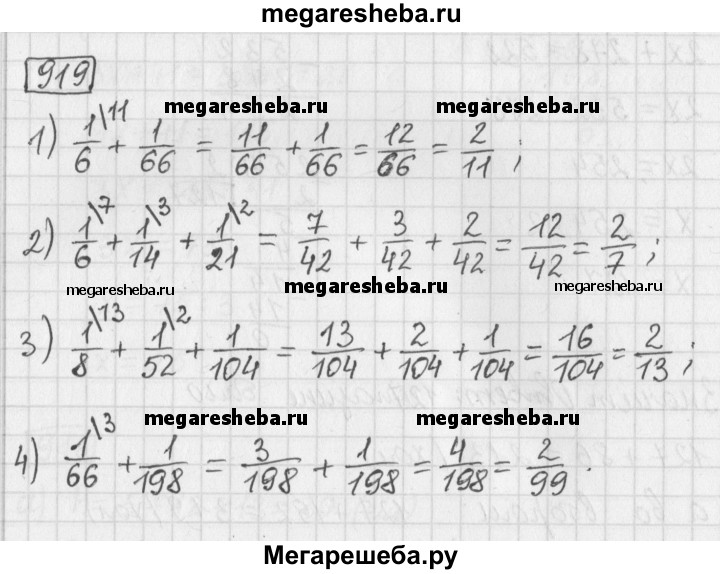 megaresheba.ru
919
megaresheba.ru megaresheba.ru
1) 1/6 \11 + 1/66 = 11/66 + 1/66 = 12/66 = 2/11 ;
2) 1/6 \7 + 1/14 \3 + 1/21 \2 = 7/42 + 3/42 + 2/42 = 12/42 = 2/7 ;
megaresheba.ru megaresheba.ru megaresheba.ru
3) 1/8 \13 + 1/52 \2 + 1/104 = 13/104 + 2/104 + 1/104 = 16/104 = 2/13 ;
megaresheba.ru megaresheba.ru
4) 1/66 \3 + 1/198 = 3/198 + 1/198 = 4/198 = 2/99 .
Мегарешеба.ру